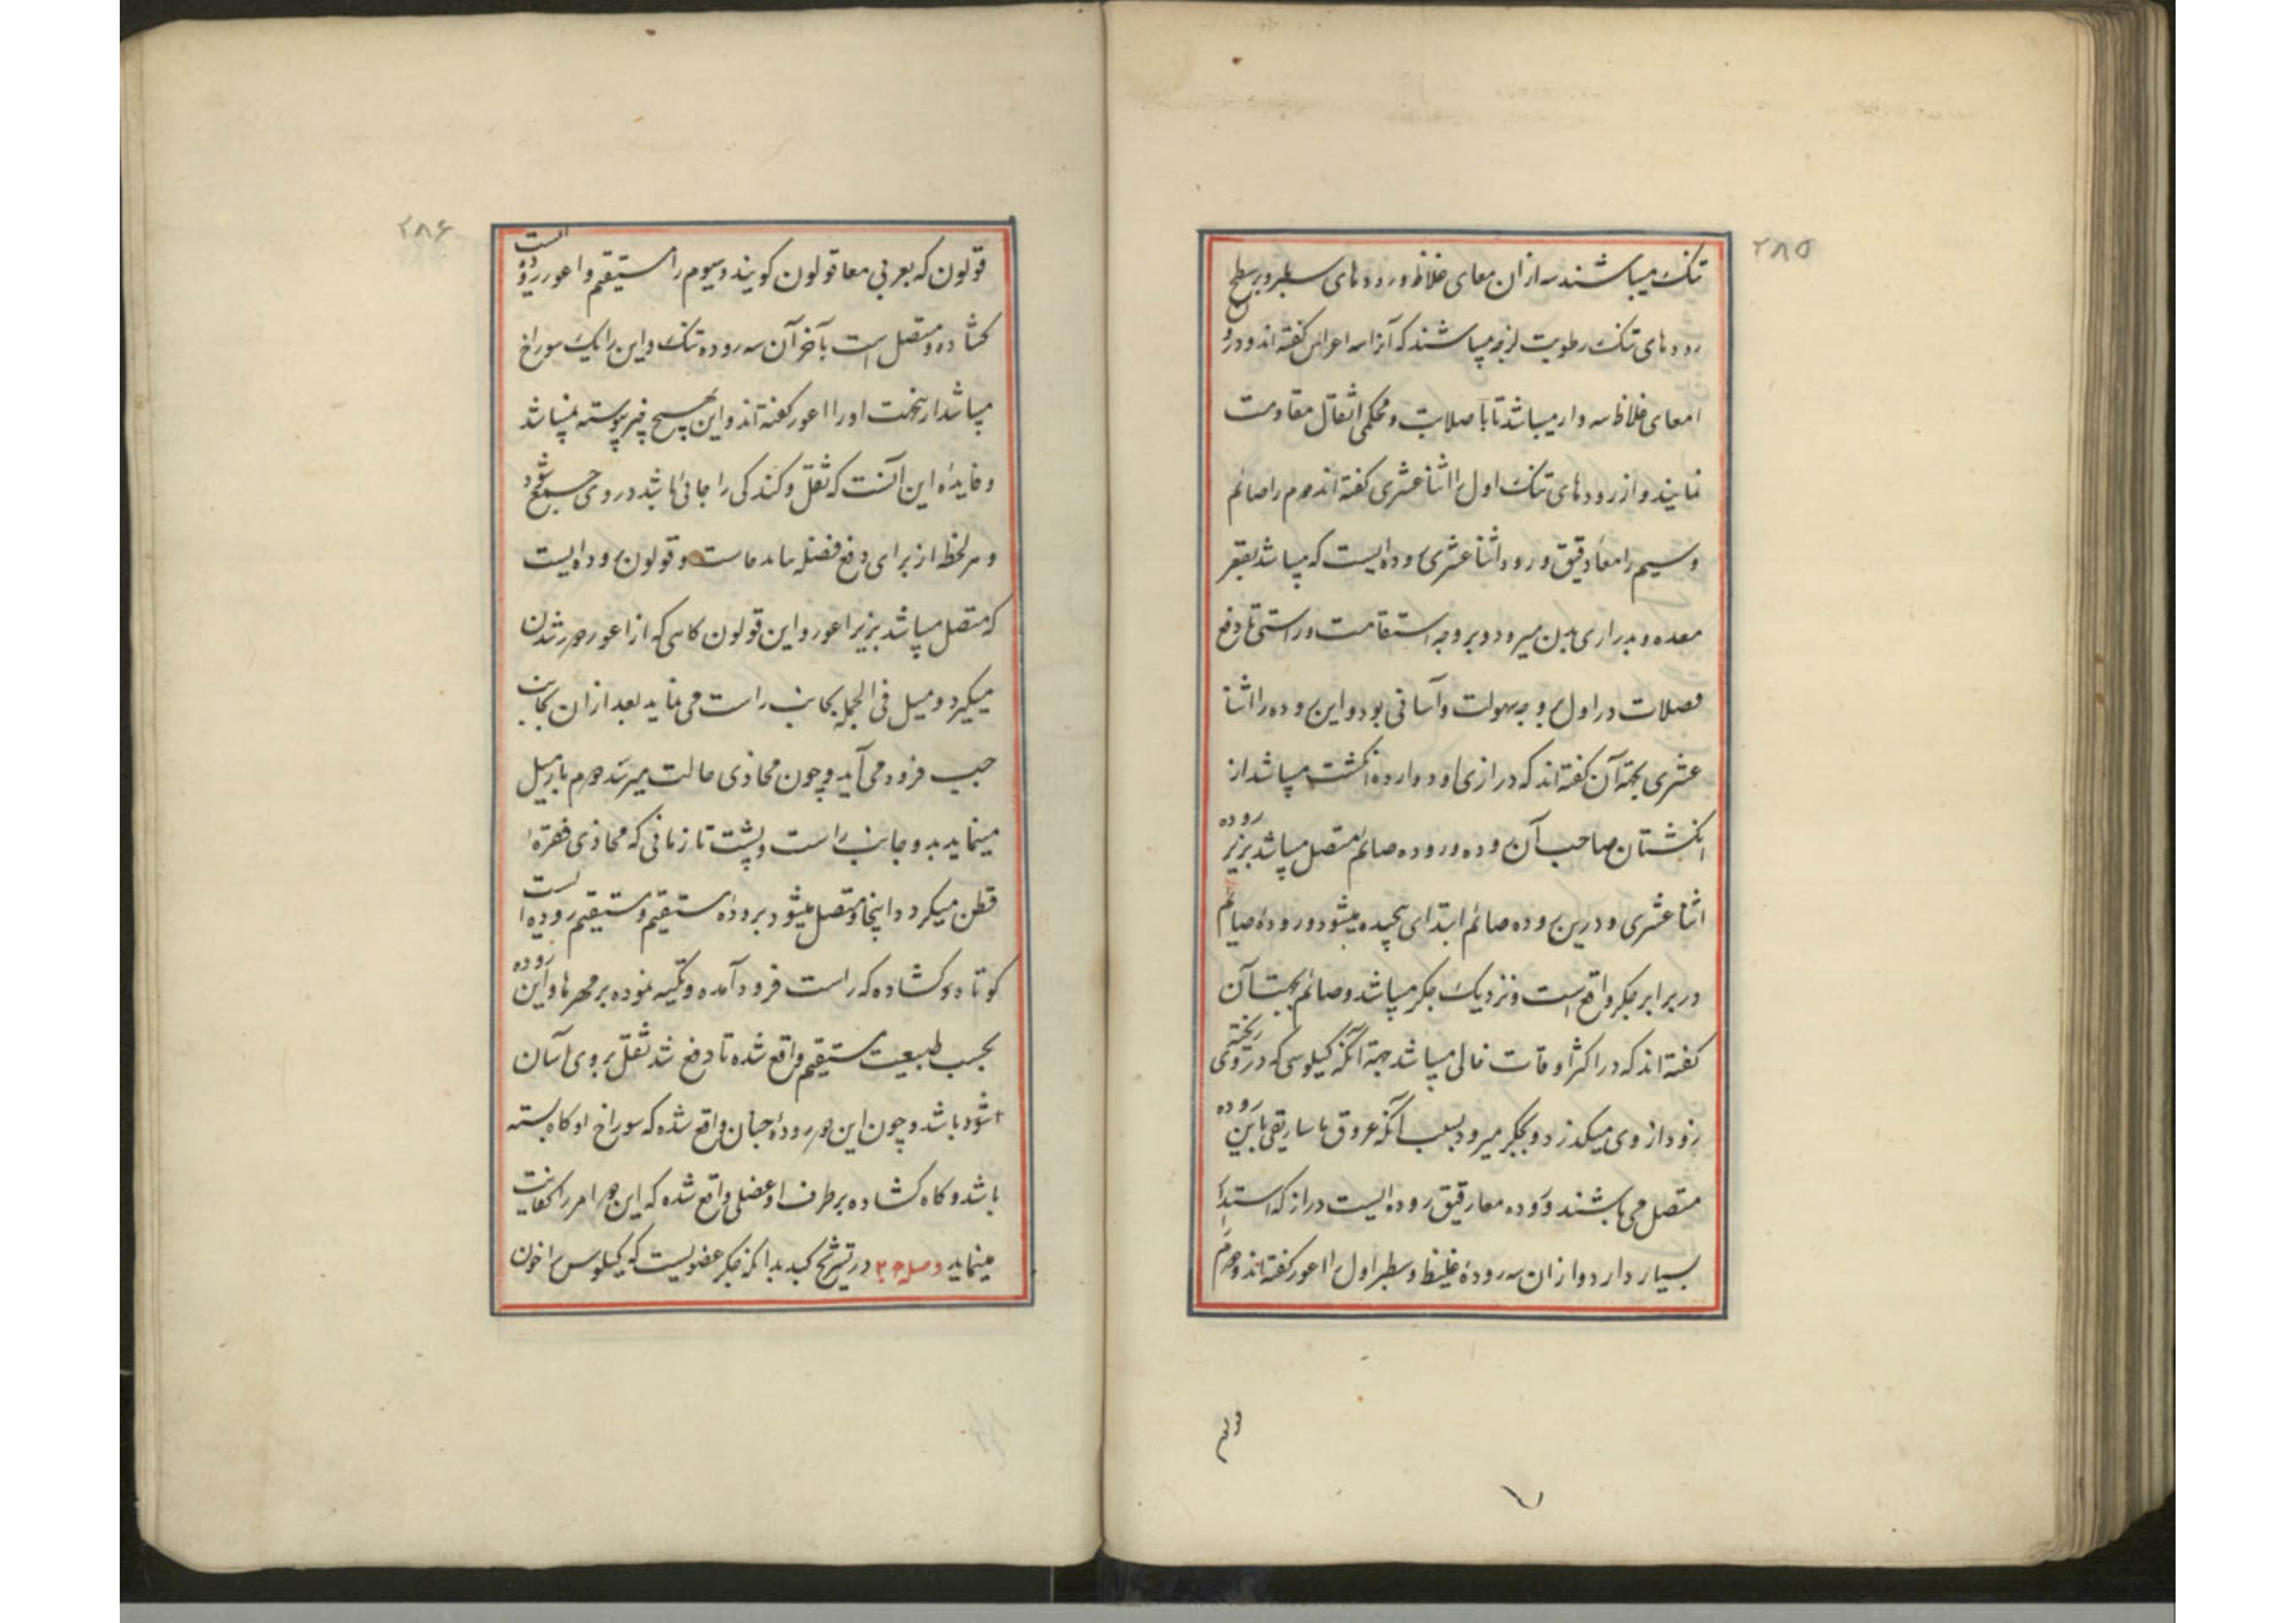 ۲۸۵
تنک میباشند سه ازان معای غلاظ و رودهای سطبر و بر سطح
رودهای تنک رطوبت لزجه میباشند که آنرا سه اعراس کفته اند و در
امعای غلاظ سه وار میباشد تا با صلابت و محکمی اثقال مقاومت
نمایند و از رودهای تنک اول را اثنا عشری کفته اند دوم را صائم
و سیم را معاء دقیق و رود اثنا عشری روده ایست که میباشد بقعر
معده و بدرازی بدن میرود و بر وجه استقامت و راستی تا دفع
فضلات در اول بوجه سهولت و آسانی بود و این روده را اثنا
عشری بجهة آن کفته اند که درازی او دوازده انکشت میباشد از
انکشتان صاحب آن روده و روده صائم متصل میباشد بزیر روده
اثنا عشری و درین روده صائم ابتدای پیچیده میشود و رودهٔ صیائم
در برابر جکر واقع است و نزدیک جکر میباشد و صائم بجهت آن
کفته اند که در اکثر اوقات خالی میباشد جهة آنکه کیلوسی که در وی ریخته
زود از وی میکذرد و بجکر میرود بسبب آنکه عروق ماساریقی باین روده
متصل می باشند و روده معاء رقیق روده ایست دراز که استدا
بسیار دارد و ازان سه رودهٔ غلیظ و سطبر اول را اعور کفته اند و دوم را
قولون
۲۸۶
قولون که بعربی معا قولون کویند و سیوم را مستقیم و اعور روده است
کشاده و متصل است بآخر آن سه روده تنک و این را یک سوراخ
میباشد ازینجهت او را اعور کفته اند و این بهیچ چیز پیوسته نمیباشد
و فایدهٔ این آنست که ثقل و کندکی را جائی باشد در وی جمع شود
و هر لحظه از برای دفع فضله نباید خاست و قولون روده ایست
که متصل میباشد بزیر اعور و این قولون کاهی که از اعور دور شدن
میکیرد و میل فی الجمله بجانب راست می نماید بعد ازان بجانب
چپ فرود می آید و چون محاذی حالت میرسد دوم بار میل
مینماید بدو جانب راست و پشت تا زمانی که محاذی فقرهٔ
قطن میکردد و اینجا متصل میشود برودهٔ مستقیم و مستقیم روده است
کوتاه و کشاده که راست فرود آمده و تکیه نموده بر مهرها و این روده
بحسب طبیعت مستقیم واقع شده تا دفع شد ثقل بروی آسان
شود باشد و چون این دو رودهٔ چنان واقع شده که سوراخ او کاه بسته
باشد و کاه کشاده بر طرف او عضلی واقع شده که این دو امر را کفایت
مینماید وصل ۲۰ در تشریح کبد بدانکه جکر عضویست که کیلوس را خون